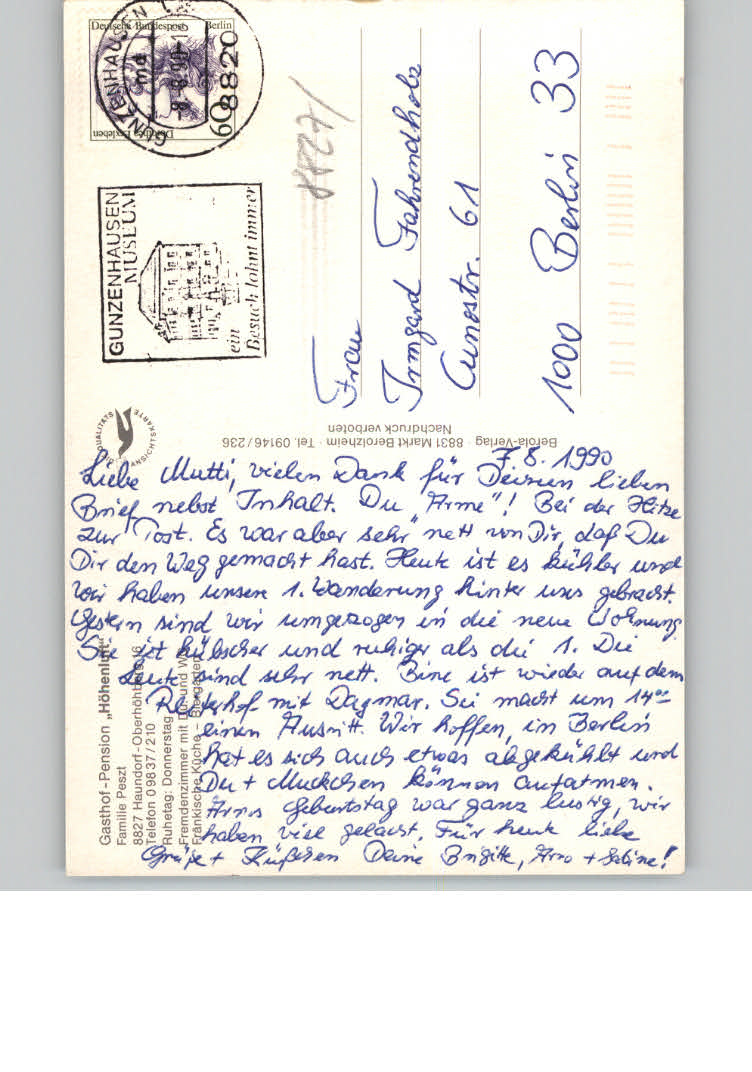 Deutsche Bundespost Berlin
60
Dorothea Erxleben
GUNZENHAUSEN
8820
-8.-8.90-18
GUNZENHAUSEN
MUSEUM
ein
Besuch lohnt immer
8827/
Frau
Irmgard Fahrendholz
Cunostr. 61
1000 Berlin 33
QUALITÄTS
ANSICHTSKARTE
Berola-Verlag · 8831 Markt Berolzheim · Tel. 09146/236
Nachdruck verboten
7.8.1990
Liebe Mutti, vielen Dank für Deinen lieben
Brief nebst Inhalt. Du "Arme"! Bei der Hitze
zur Post. Es war aber sehr nett von Dir, daß Du
Dir den Weg gemacht hast. Heute ist es kühler und
wir haben unsere 1. Wanderung hinter uns gebracht.
Gestern sind wir umgezogen in die neue Wohnung
Sie ist hübscher und ruhiger als die 1. Die
Leute sind sehr nett. Bine ist wieder auf dem
Reiterhof mit Dagmar. Sie macht um 14°°
einen Ausritt. Wir hoffen, in Berlin
hat es sich auch etwas abgekühlt und
Du + Muckchen können aufatmen.
Arnos Geburtstag war ganz lustig, wir
haben viel gelacht. Für heute liebe
Grüße + Küßchen Deine Brigitte, Arno + Sabine!
Gasthof-Pension „Höhenluft"
Familie Peszt
8827 Haundorf-Oberhöhberg
Telefon 0 98 37 / 210
Ruhetag: Donnerstag
Fremdenzimmer mit und W
Fränkische Küche – Biergarten